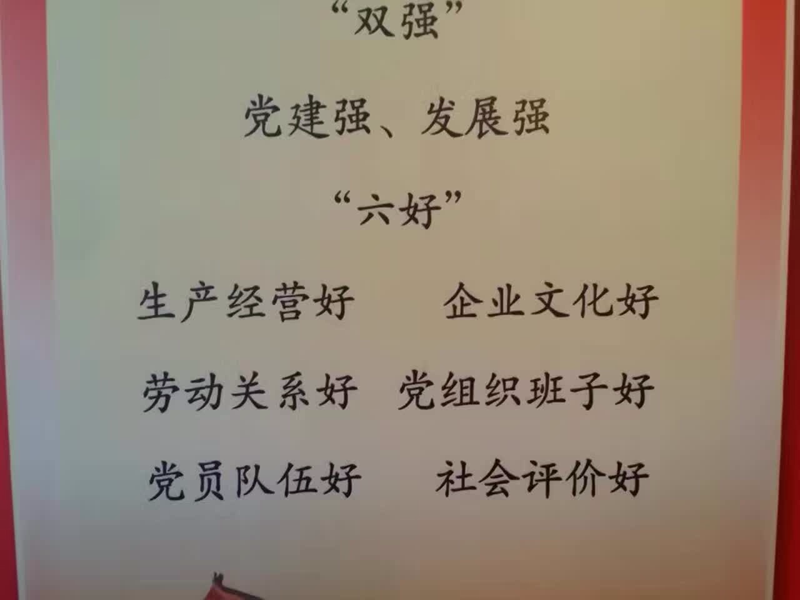 “双强”
党建强、发展强
“六好”
生产经营好 企业文化好
劳动关系好 党组织班子好
党员队伍好 社会评价好